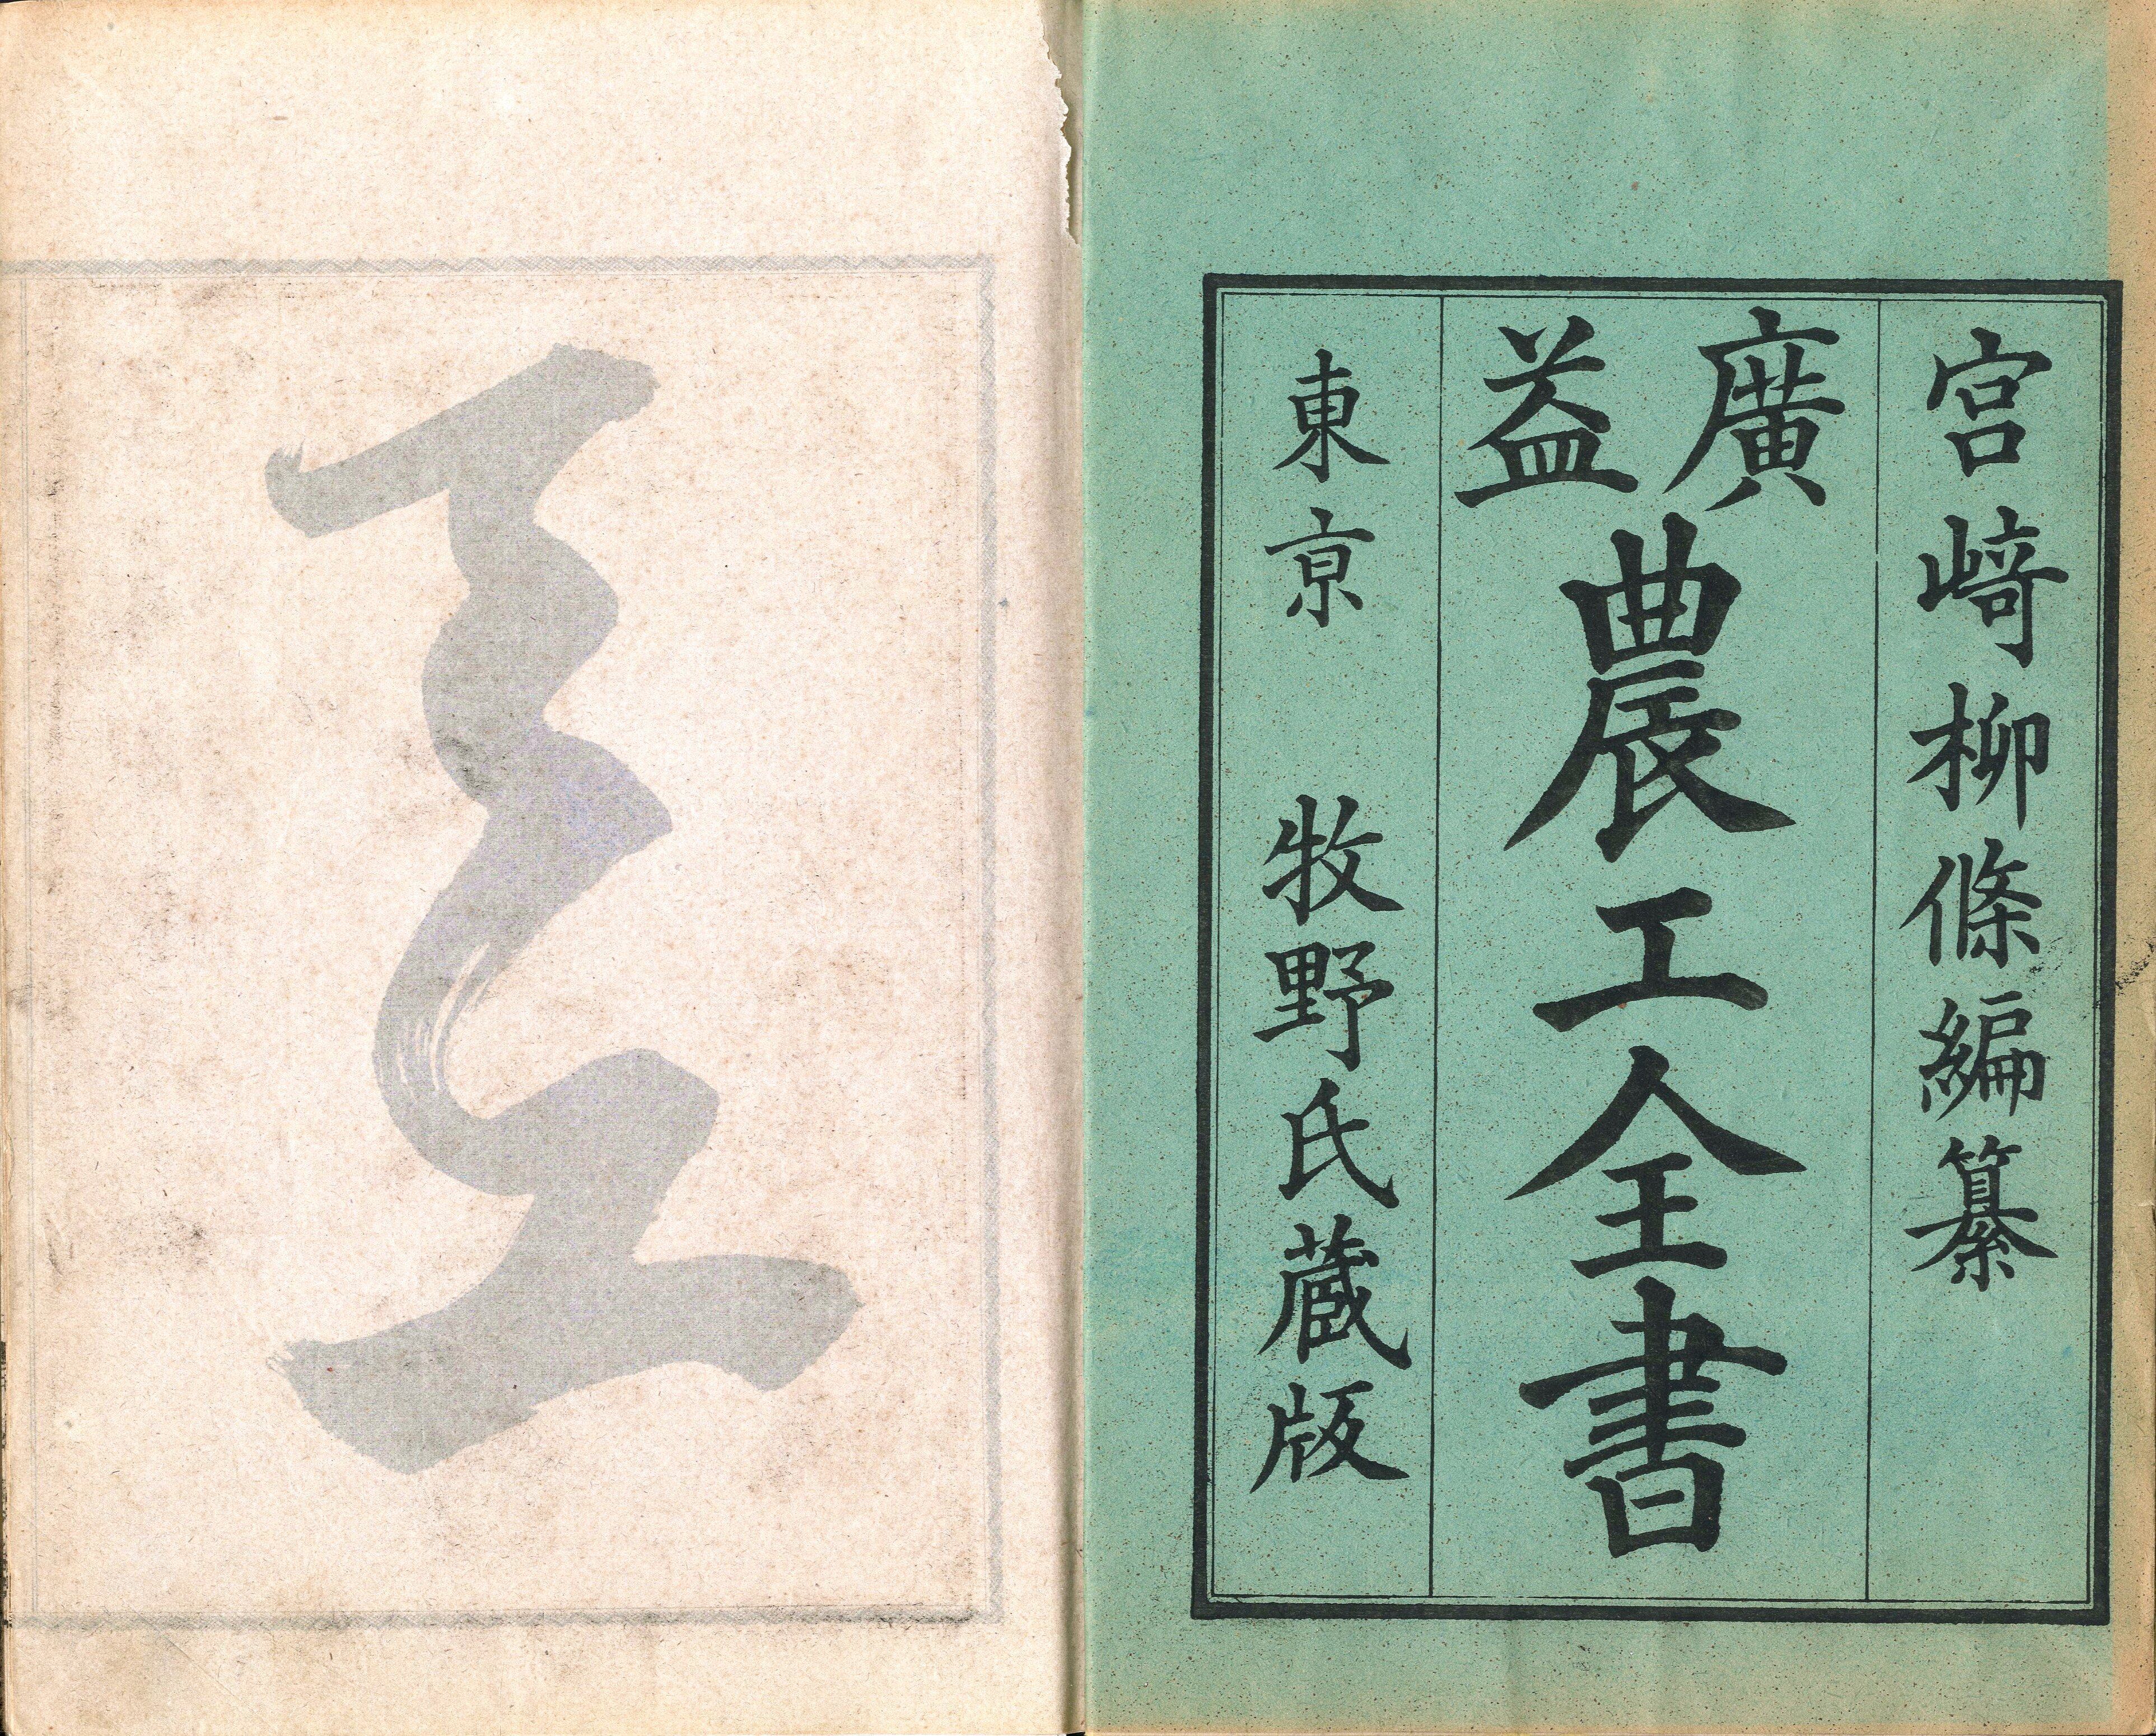 宮﨑柳條編纂
廣益農工全書
東亰 牧野氏蔵版